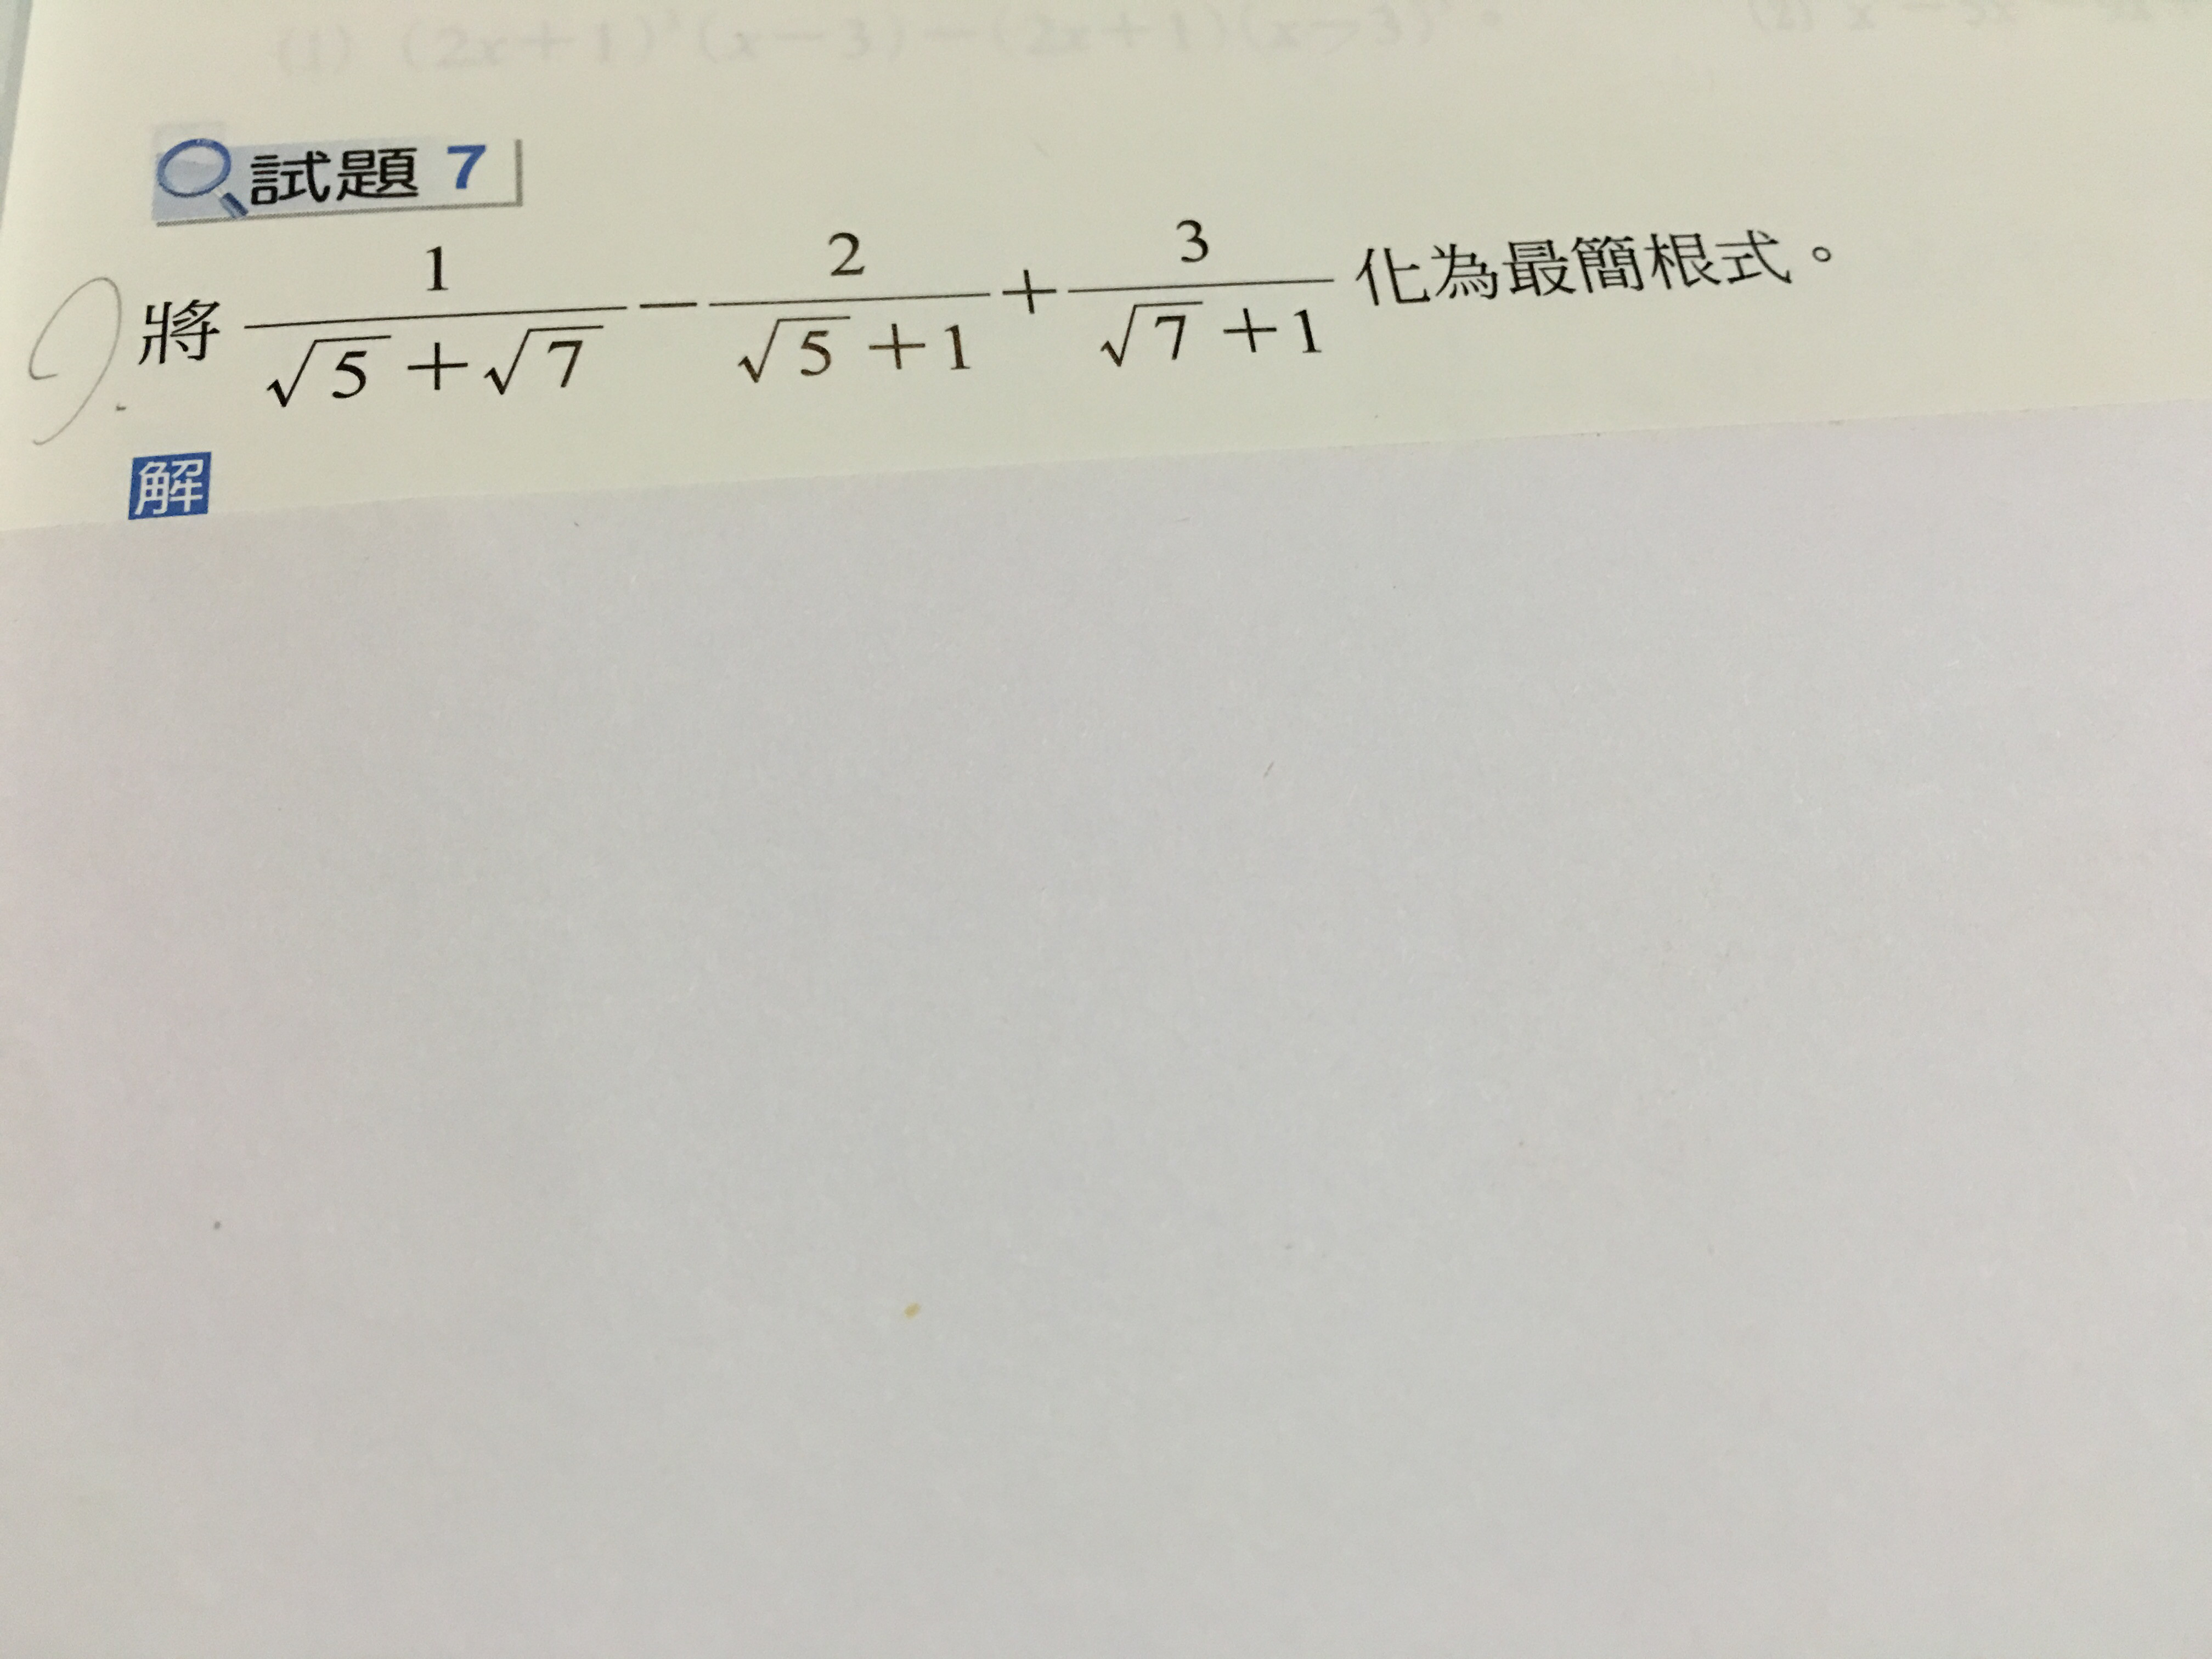 (1) (2x+1)²(x−3)−(2x+1)(x−3)²。
試題 7
將 1/(√5+√7) − 2/(√5+1) + 3/(√7+1) 化為最簡根式。
解